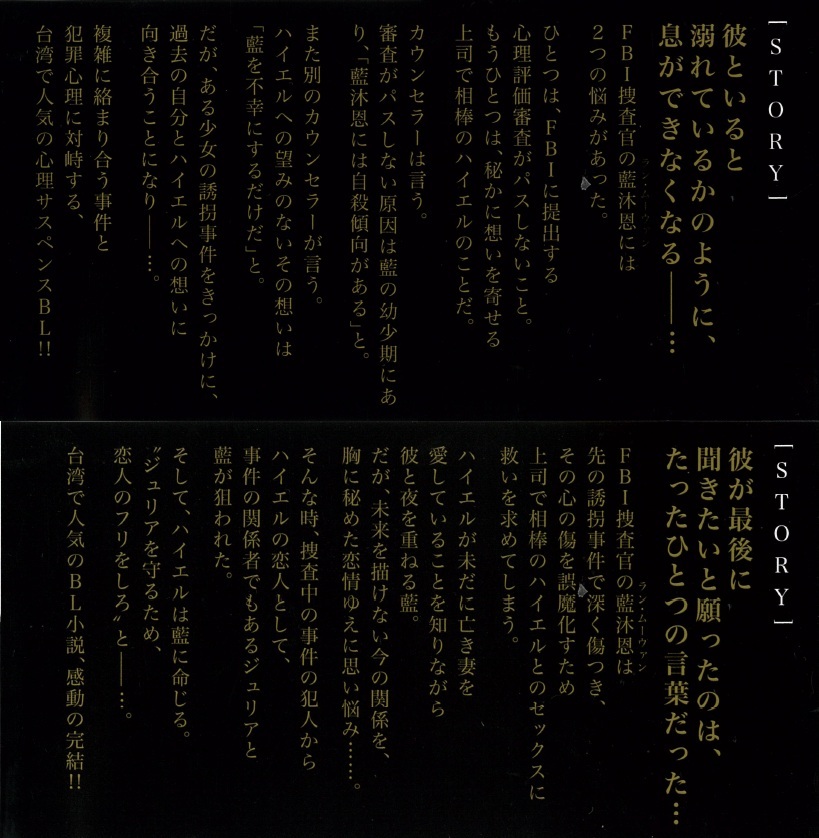 [STORY]
彼といると
溺れているかのように、
息ができなくなる――…
ラン・ムーウァン
FBI捜査官の藍沐恩には
2つの悩みがあった。
ひとつは、FBIに提出する
心理評価審査がパスしないこと。
もうひとつは、秘かに想いを寄せる
上司で相棒のハイエルのことだ。
カウンセラーは言う。
審査がパスしない原因は藍の幼少期にあ
り、「藍沐恩には自殺傾向がある」と。
また別のカウンセラーが言う。
ハイエルへの望みのないその想いは
「藍を不幸にするだけだ」と。
だが、ある少女の誘拐事件をきっかけに、
過去の自分とハイエルへの想いに
向き合うことになり――…。
複雑に絡まり合う事件と
犯罪心理に対峙する、
台湾で人気の心理サスペンスBL!!
[STORY]
彼が最後に
聞きたいと願ったのは、
たったひとつの言葉だった…
ラン・ムーウァン
FBI捜査官の藍沐恩は
先の誘拐事件で深く傷つき、
その心の傷を誤魔化すため
上司で相棒のハイエルとのセックスに
救いを求めてしまう。
ハイエルが未だに亡き妻を
愛していることを知りながら
彼と夜を重ねる藍。
だが、未来を描けない今の関係を、
胸に秘めた恋情ゆえに思い悩み……。
そんな時、捜査中の事件の犯人から
ハイエルの恋人として、
事件の関係者でもあるジュリアと
藍が狙われた。
そして、ハイエルは藍に命じる。
〝ジュリアを守るため、
恋人のフリをしろ〟と――…。
台湾で人気のBL小説、感動の完結!!